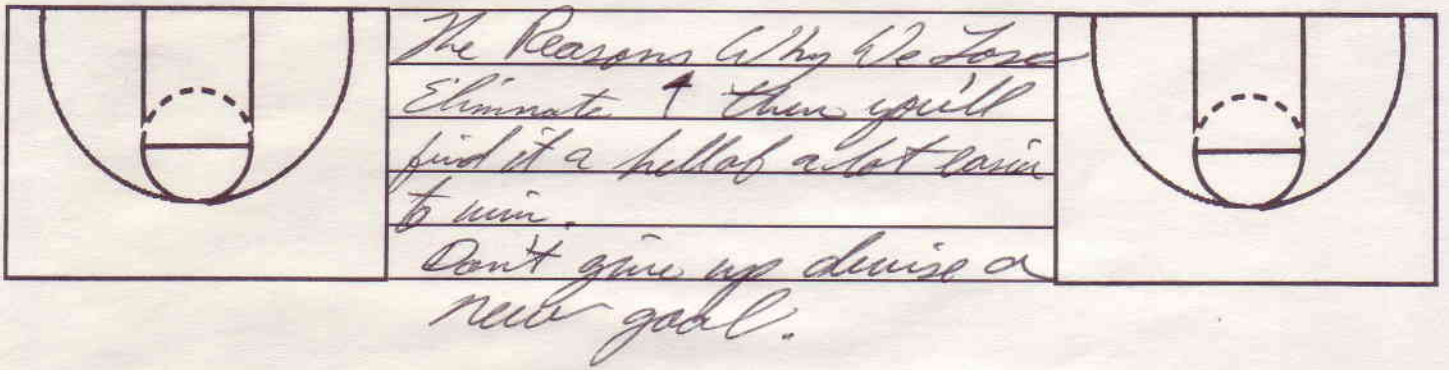 The Reasons Why We Lose
Eliminate ↑ then you'll
find it a hellof a lot easier
to win.
Don't give up devise a
new goal.